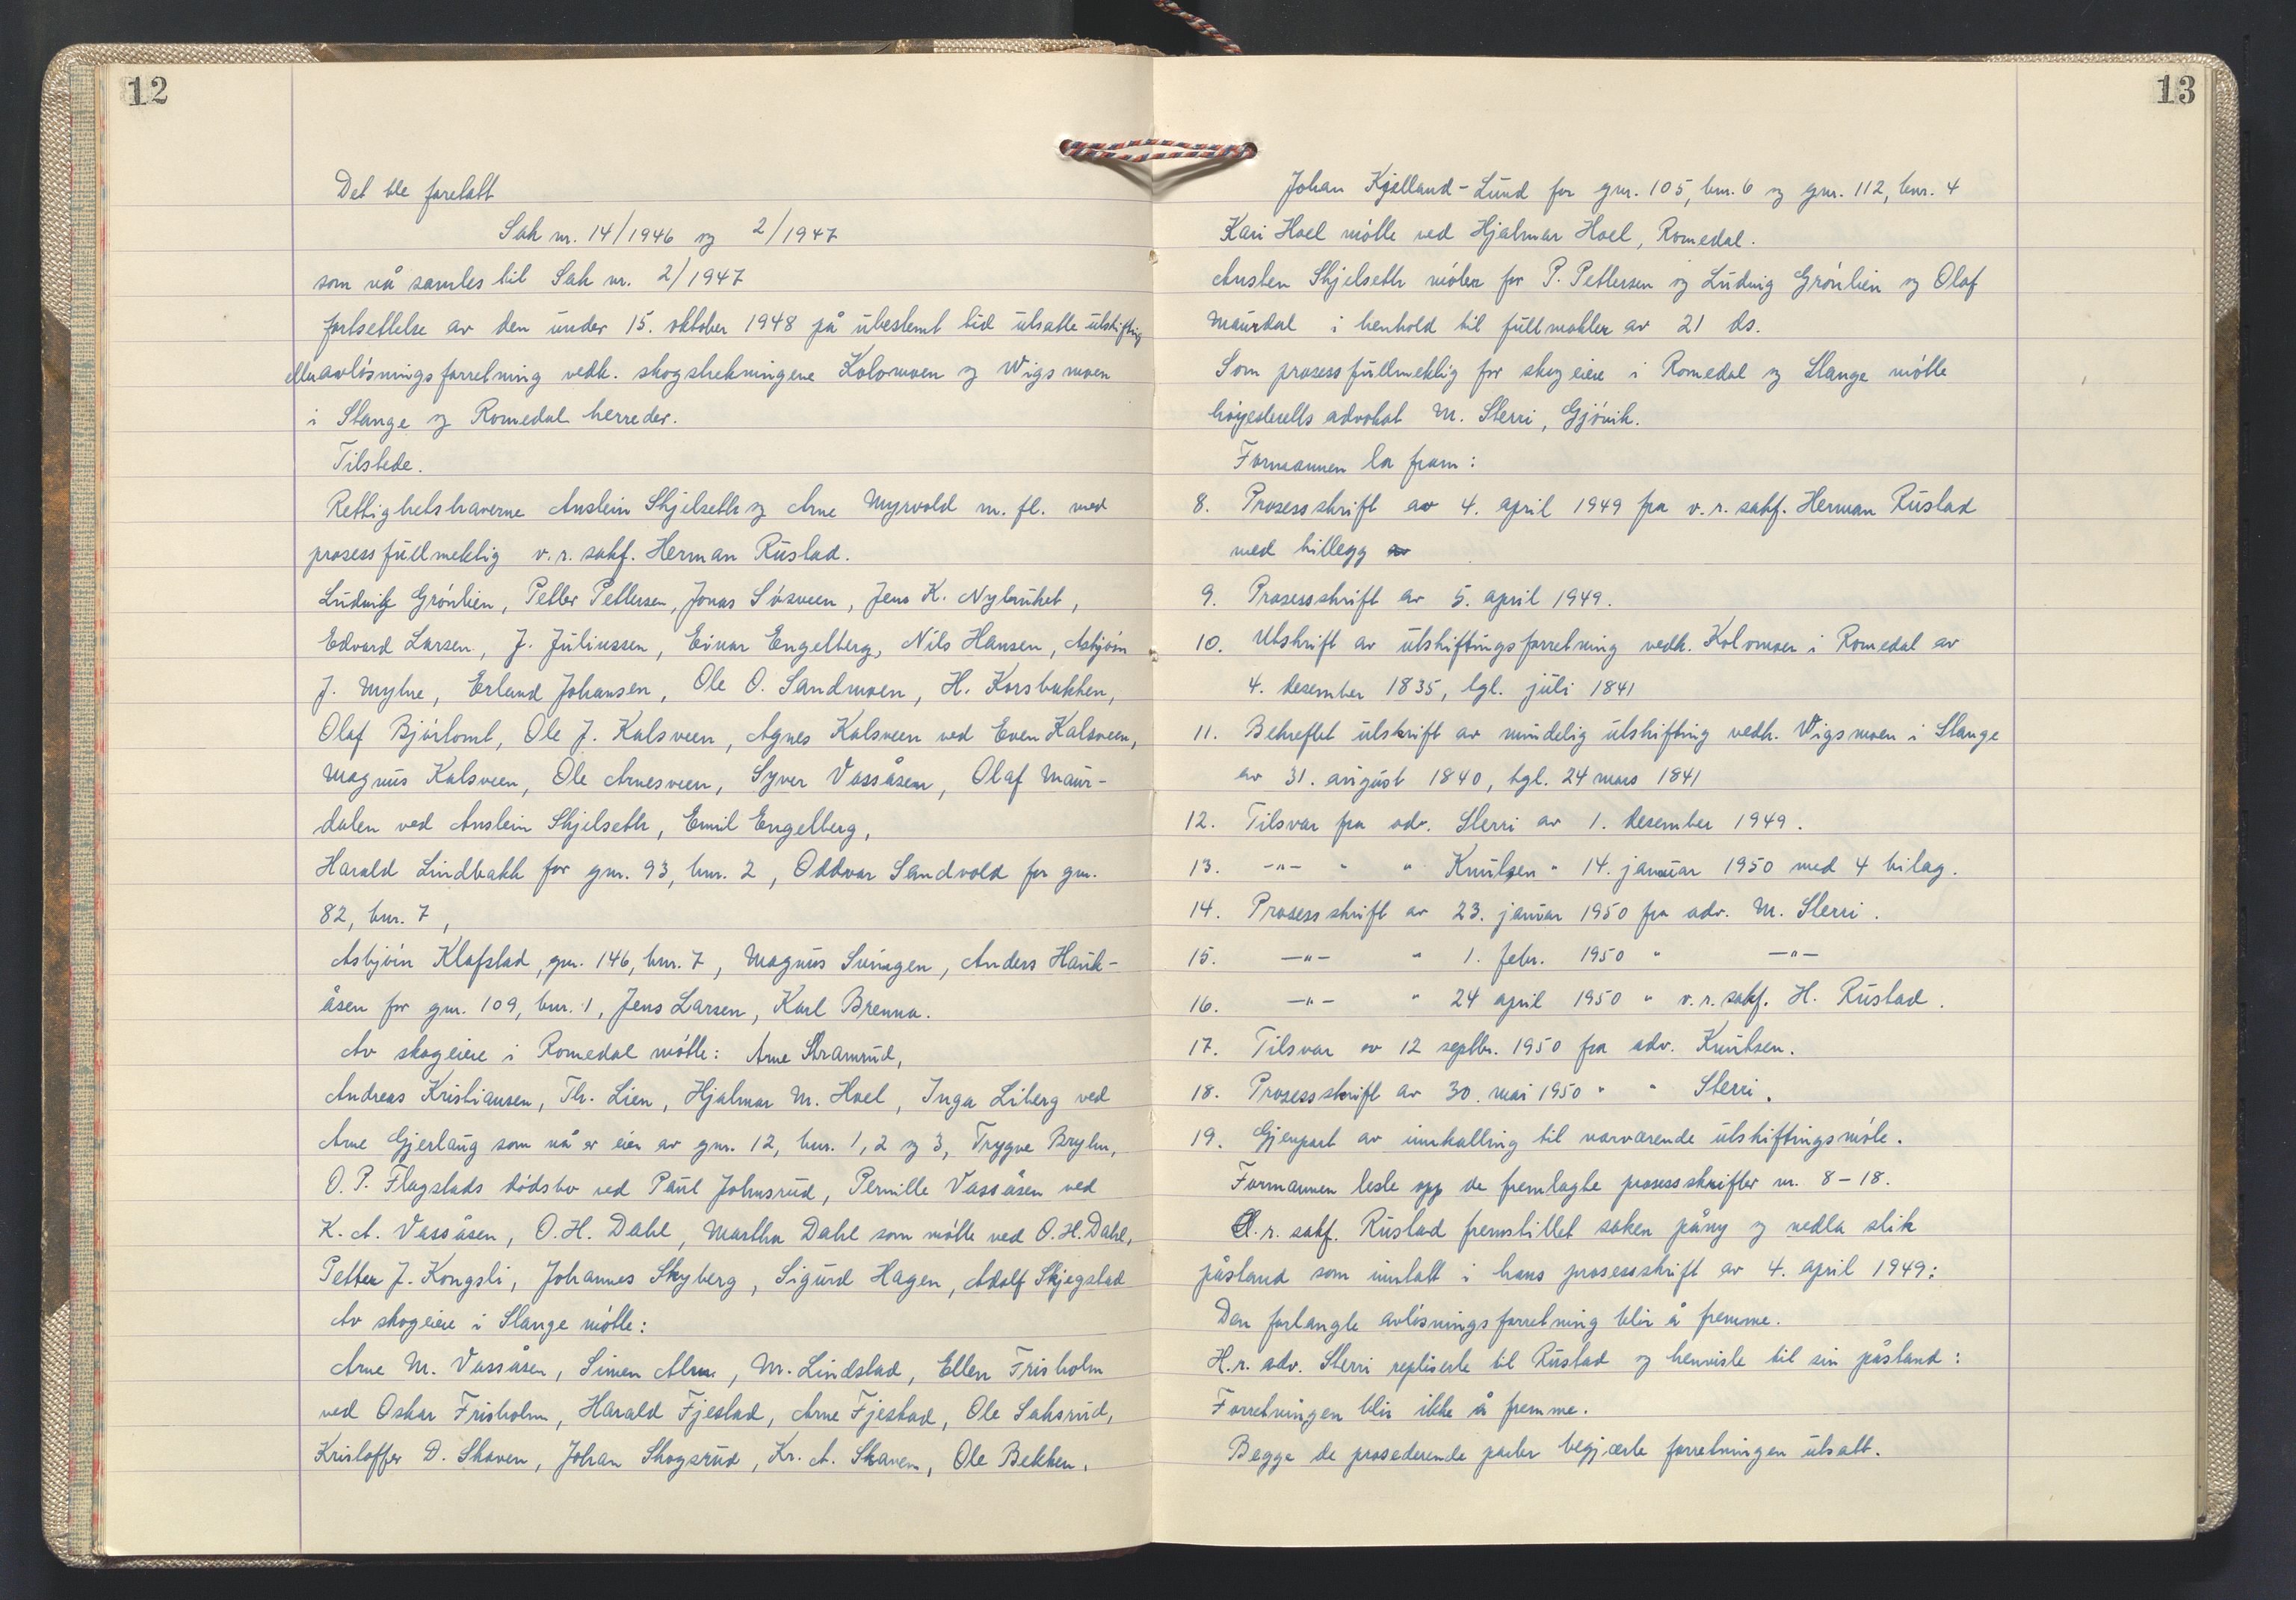 12
Det ble foretatt
Sak nr. 14/1946 og 2/1947
som nå samles til Sak nr. 2/1947
fortsettelse av den under 15. oktober 1948 på ubestemt tid utsatte utskifting
avløsningsforretning vedk. skogstrekningene Kolomoen og Wigsmoen
i Stange og Romedal herreder.
Tilstede.
Rettighetshaverne Anstein Skjelseth og Arne Myrvold m. fl. med
prosessfullmektig v.r. sakf. Herman Rustad.
Ludwik Grønlien, Petter Pettersen, Jonas Såsveen, Jens K. Nybruket,
Edvard Larsen, J. Juliussen, Einar Engelberg, Nils Hansen, Asbjørn
J. Myhre, Erland Johansen, Ole O. Sandmoen, H. Korsbakken,
Olaf Bjørtomt, Ole J. Kalsveen, Agnes Kalsveen ved Even Kalsveen,
Magnus Kalsveen, Ole Arnesveen, Syver Vassåsen, Olaf Maur-
dalen ved Anstein Skjelseth, Emil Engelberg,
Harald Lindbakk for gnr. 93, bnr. 2, Oddvar Sandvold for gnr.
82, bnr. 7,
Asbjørn Klafstad, gnr. 146, bnr. 7, Magnus Svingen, Anders Hauk-
åsen for gnr. 109, bnr. 1, Jens Larsen, Karl Brenna.
Av skogeiere i Romedal møtte: Arne Stramrud,
Andreas Kristiansen, Th. Lien, Hjalmar M. Hoel, Inga Liberg ved
Arne Gjerlaug som nå er eier av gnr. 12, bnr. 1, 2 og 3, Trygve Bryhn,
O. P. Flagstads dødsbo ved Paul Johnsrud, Pernille Vassåsen ved
K. A. Vassåsen, O. H. Dahl, Martha Dahl som møtte ved O. H. Dahl,
Petter J. Kongsli, Johannes Skyberg, Sigurd Hagen, Adolf Skjegstad
Av skogeiere i Stange møtte:
Arne M. Vassåsen, Simen Alm, M. Lindstad, Ellen Frisholm
ved Oskar Frisholm, Harald Fjestad, Arne Fjestad, Ole Saksrud,
Kristoffer D. Skaven, Johan Skogsrud, Kr. A. Skaven, Ole Bekken.
13
Johan Kjelland-Lund for gnr. 105, bnr. 6 og gnr. 112, bnr. 4
Kari Hoel møtte ved Hjalmar Hoel, Romedal.
Ansten Skjelseth møter for P. Pettersen og Ludvig Grønlien og Olaf
Maurdal i henhold til fullmakter av 21 ds.
Som prosessfullmektig for skogeiere i Romedal og Stange møtte
høyesteretts advokat M. Sterri, Gjøvik.
Formannen la fram:
8. Prosesskrift av 4. april 1949 fra v. r. sakf. Herman Rustad
med tillegg av
9. Prosesskrift av 5. april 1949.
10. Utskrift av utskiftingsforretning vedk. Kolomoen i Romedal av
4. desember 1835, tgl. juli 1841
11. Bekreftet utskrift av mindelig utskifting vedk. Wigsmoen i Stange
av 31. august 1840, tgl. 24 mars 1841
12. Tilsvar fra adv. Sterri av 1. desember 1949.
13. -"- " " Knutsen " 14. januar 1950 med 4 bilag.
14. Prosesskrift av 23. januar 1950 fra adv. M. Sterri.
15. -"- " 1. febr. 1950 " -"-
16. -"- " 24 april 1950 " v. r. sakf. H. Rustad.
17. Tilsvar av 12 septbr. 1950 fra adv. Knutsen.
18. Prosesskrift av 30. mai 1950 " " Sterri.
19. Gjenpart av innkalling til nærværende utskiftingsmøte.
Formannen leste opp de fremlagte prosesskrifter nr. 8-18.
O. r. sakf. Rustad fremstillet saken påny og nedla slik
påstand som inntatt i hans prosesskrift av 4. april 1949:
Den forlangte avløsningsforretning blir å fremme.
H.r. adv. Sterri repliserte til Rustad og henviste til sin påstand:
Forretningen blir ikke å fremme.
Begge de prosederende parter begjærte forretningen utsatt.